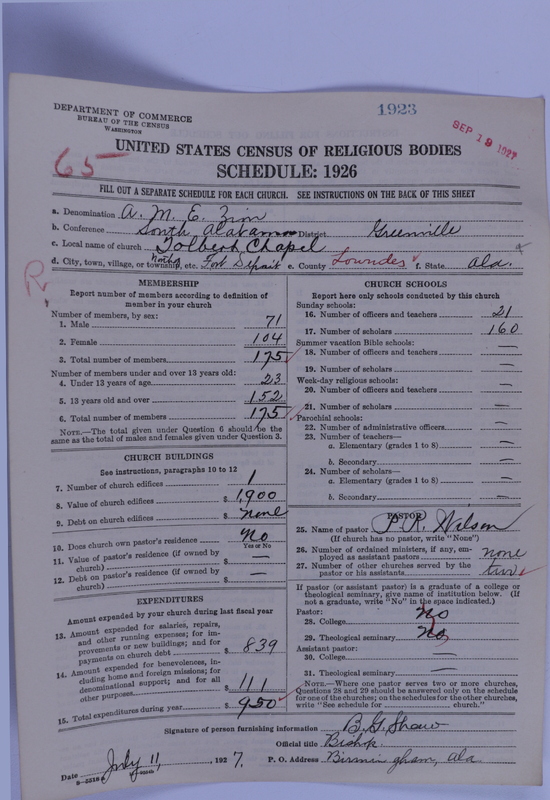 1923
DEPARTMENT OF COMMERCE
BUREAU OF THE CENSUS
WASHINGTON
SEP 19 192
65
UNITED STATES CENSUS OF RELIGIOUS BODIES
SCHEDULE: 1926
FILL OUT A SEPARATE SCHEDULE FOR EACH CHURCH. SEE INSTRUCTIONS ON THE BACK OF THIS SHEET
a. Denomination A. M. E. Zion
b. Conference South Alabama District Greenville
c. Local name of church Tolbert Chapel
d. City, town, village, or township, etc. Fort Deposit e. County Lowndes f. State Ala.
R
MEMBERSHIP
Report number of members according to definition of
member in your church
Number of members, by sex:
1. Male 71
2. Female 104
3. Total number of members 175
Number of members under and over 13 years old:
4. Under 13 years of age 23
5. 13 years old and over 152
6. Total number of members 175
NOTE.—The total given under Question 6 should be the
same as the total of males and females given under Question 3.
CHURCH BUILDINGS
See instructions, paragraphs 10 to 12
7. Number of church edifices 1
8. Value of church edifices $ 1,900
9. Debt on church edifices $ none
10. Does church own pastor's residence No
Yes or No
11. Value of pastor's residence (if owned by
church) $ —
12. Debt on pastor's residence (if owned by
church) $ —
EXPENDITURES
Amount expended by your church during last fiscal year
13. Amount expended for salaries, repairs,
and other running expenses; for im-
provements or new buildings; and for
payments on church debt $ 839
14. Amount expended for benevolences, in-
cluding home and foreign missions; for
denominational support; and for all
other purposes $ 111
15. Total expenditures during year $ 950
CHURCH SCHOOLS
Report here only schools conducted by this church
Sunday schools:
16. Number of officers and teachers 21
17. Number of scholars 160
Summer vacation Bible schools:
18. Number of officers and teachers —
19. Number of scholars —
Week-day religious schools:
20. Number of officers and teachers —
21. Number of scholars —
Parochial schools:
22. Number of administrative officers —
23. Number of teachers—
a. Elementary (grades 1 to 8) —
b. Secondary —
24. Number of scholars—
a. Elementary (grades 1 to 8) —
b. Secondary —
PASTOR
25. Name of pastor P. R. Wilson
(If church has no pastor, write "None")
26. Number of ordained ministers, if any, em-
ployed as assistant pastors none
27. Number of other churches served by the
pastor or his assistants two
If pastor (or assistant pastor) is a graduate of a college or
theological seminary, give name of institution below. (If
not a graduate, write "No" in the space indicated.)
Pastor:
28. College No
29. Theological seminary No
Assistant pastor:
30. College —
31. Theological seminary —
NOTE.—Where one pastor serves two or more churches,
Questions 28 and 29 should be answered only on the schedule
for one of the churches; on the schedules for the other churches,
write "See schedule for church."
Signature of person furnishing information B. G. Shaw
Official title Bishop
Date July 11, 1927. P. O. Address Birmingham, Ala.